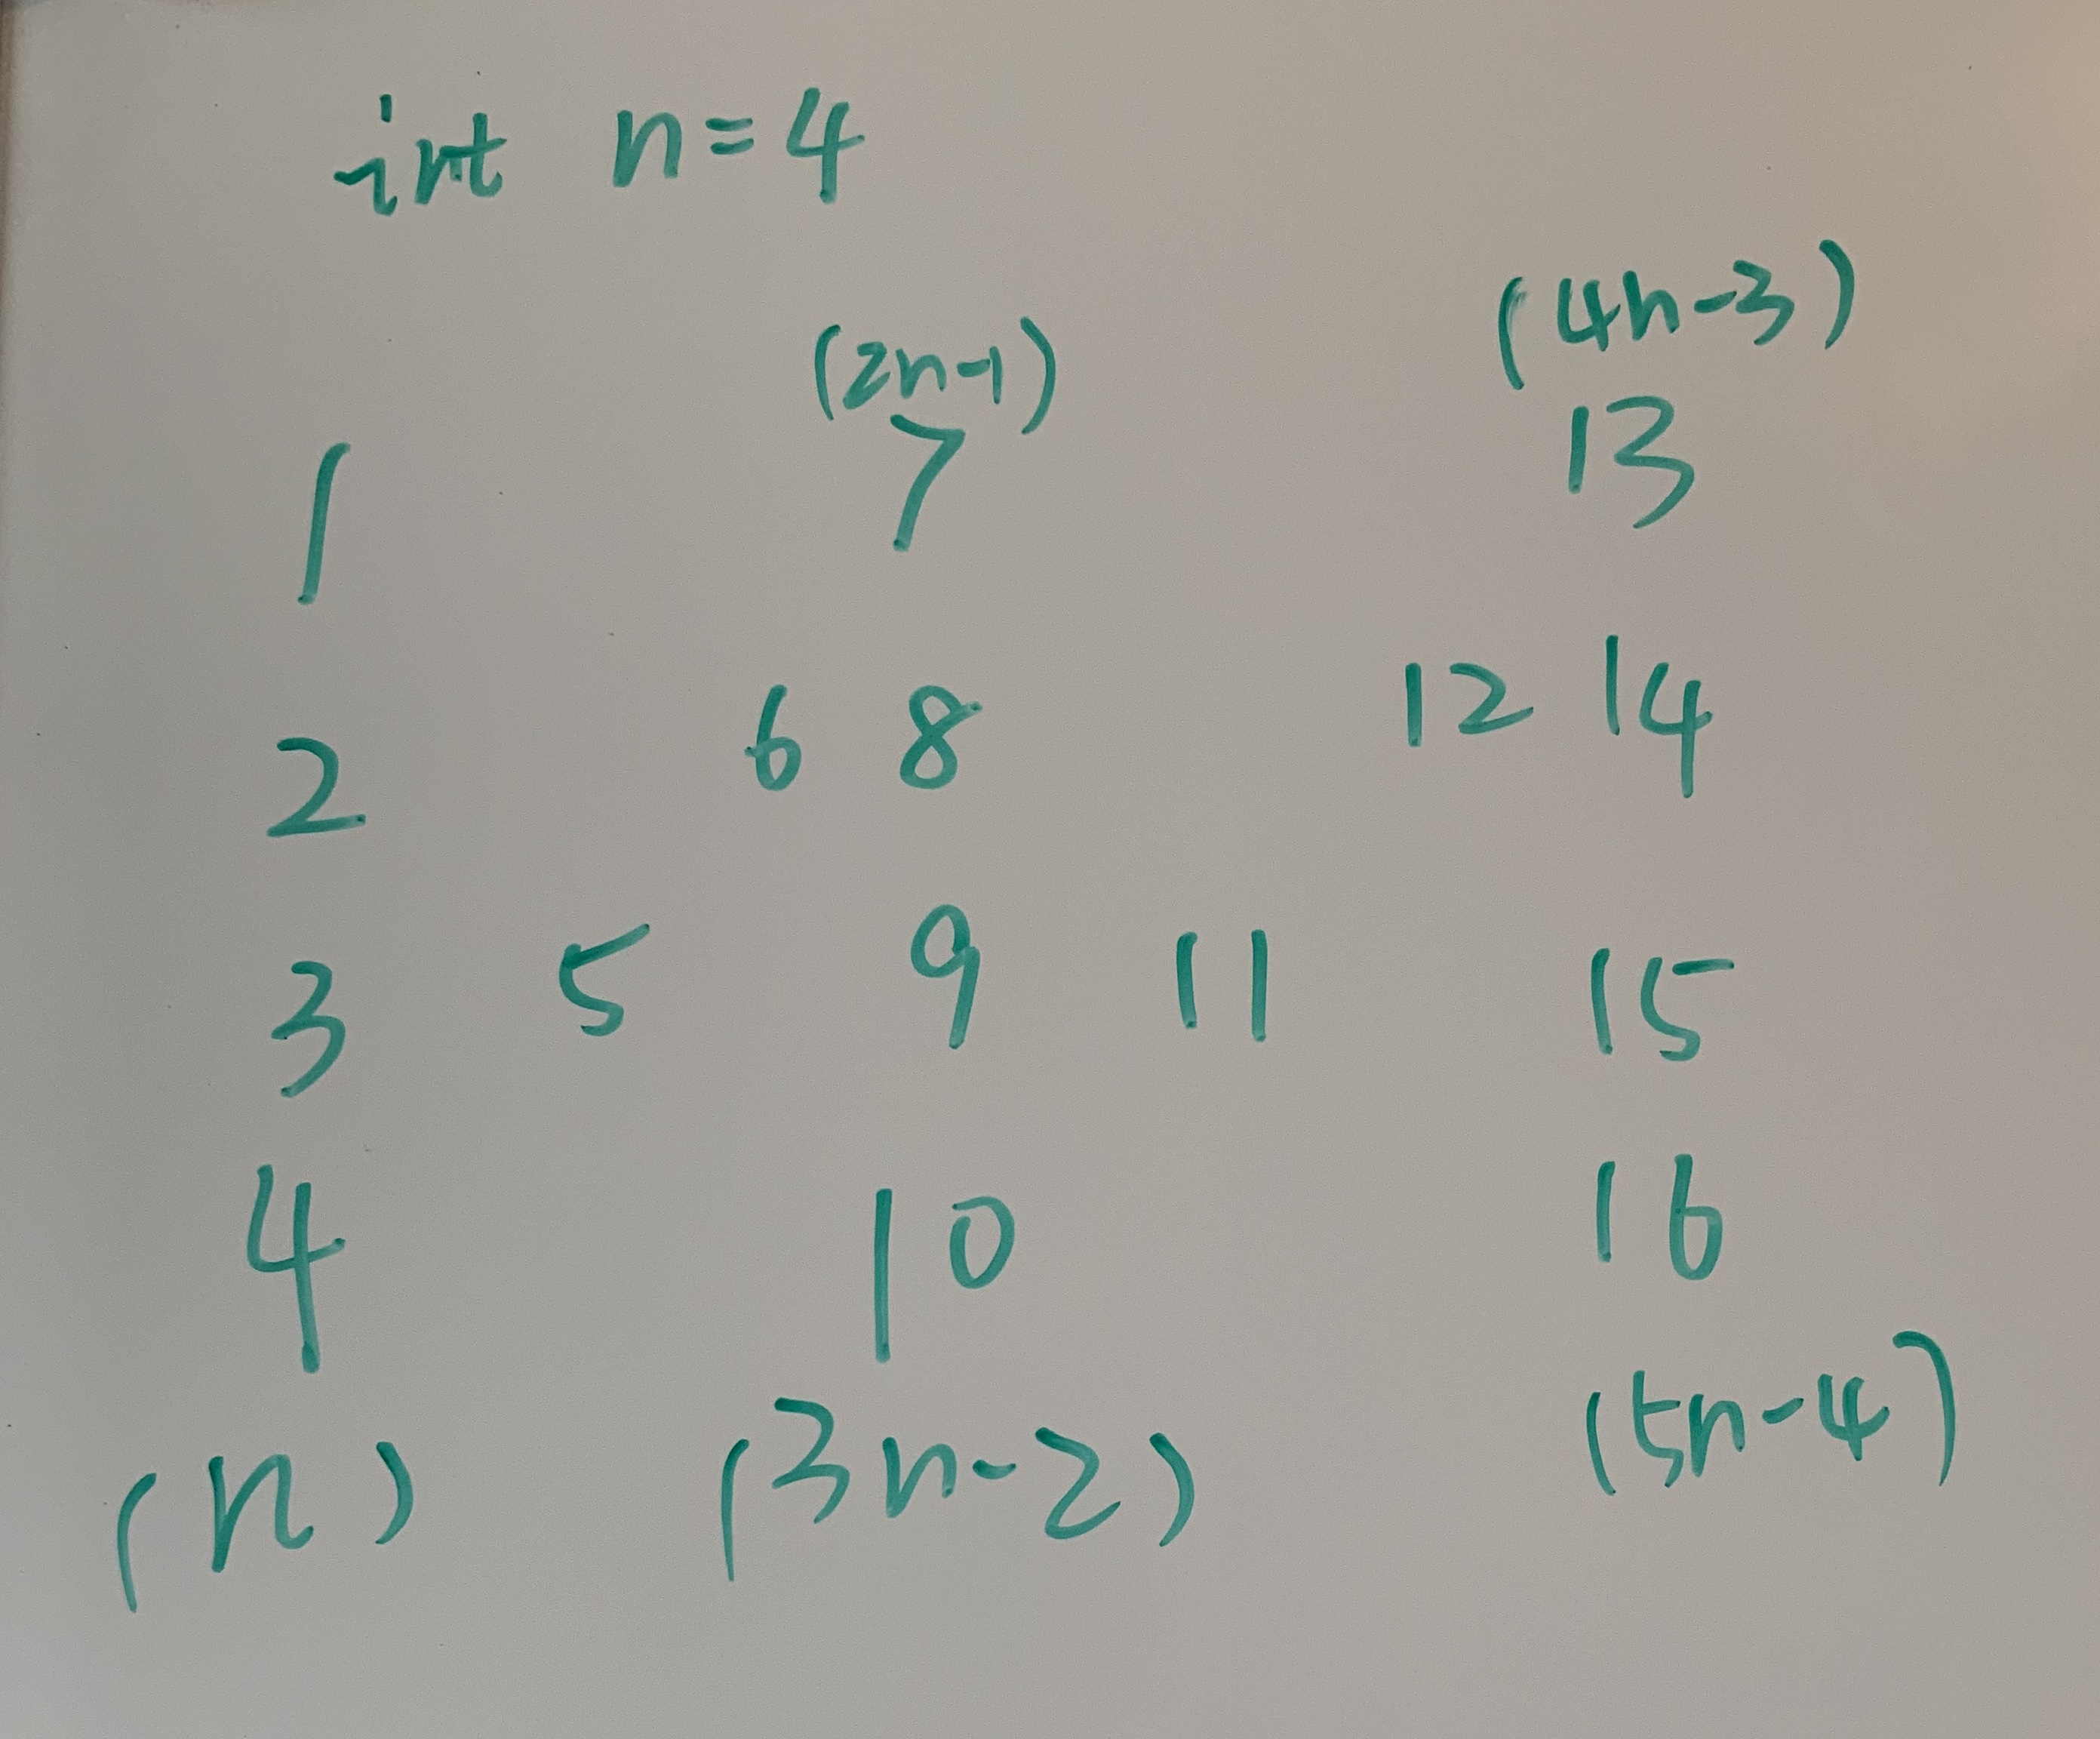 int n=4
(4n-3)
(2n-1)
1 7 13
2 6 8 12 14
3 5 9 11 15
4 10 16
(n) (3n-2) (5n-4)